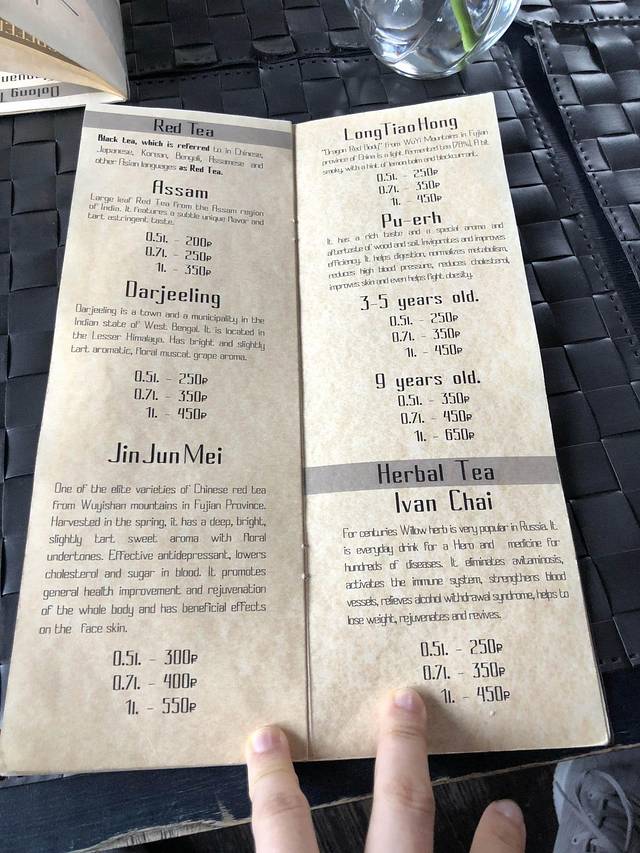 Oolong
Red Tea
Black tea, which is referred to in Chinese,
Japanese, Korean, Bengali, Assamese and
other Asian languages as Red Tea.
Assam
Large leaf Red Tea from the Assam region
of India. It features a subtle unique flavor and
tart astringent taste.
0.5l. - 200₽
0.7l. - 250₽
1l. - 350₽
Darjeeling
Darjeeling is a town and a municipality in the
Indian state of West Bengal. It is located in
the Lesser Himalaya. Has bright and slightly
tart aromatic, floral muscat grape aroma.
0.5l. - 250₽
0.7l. - 350₽
1l. - 450₽
Jin Jun Mei
One of the elite varieties of Chinese red tea
from Wuyishan mountains in Fujian Province.
Harvested in the spring, it has a deep, bright,
slightly tart sweet aroma with floral
undertones. Effective antidepressant, lowers
cholesterol and sugar in blood. It promotes
general health improvement and rejuvenation
of the whole body and has beneficial effects
on the face skin.
0.5l. - 300₽
0.7l. - 400₽
1l. - 550₽
Long Tiao Hong
"Dragon Red Body" from WuYi Mountains in Fujian
province of China is a light, fermented tea (78%). A bit
smoky, with a hint of lemon balm and blackcurrant.
0.5l. - 250₽
0.7l. - 350₽
1l. - 450₽
Pu-erh
It has a rich taste and a special aroma and
aftertaste of wood and soil. Invigorates and improves
efficiency. It helps digestion, normalizes metabolism,
reduces high blood pressure, reduces cholesterol,
improves skin and even helps fight obesity.
3-5 years old.
0.5l. - 250₽
0.7l. - 350₽
1l. - 450₽
9 years old.
0.5l. - 350₽
0.7l. - 450₽
1l. - 650₽
Herbal Tea
Ivan Chai
For centuries Willow herb is very popular in Russia. It
is everyday drink for a Hero and medicine for
hundreds of diseases. It eliminates avitaminosis,
activates the immune system, strengthens blood
vessels, relieves alcohol withdrawal syndrome, helps to
lose weight, rejuvenates and revives.
0.5l. - 250₽
0.7l. - 350₽
1l. - 450₽